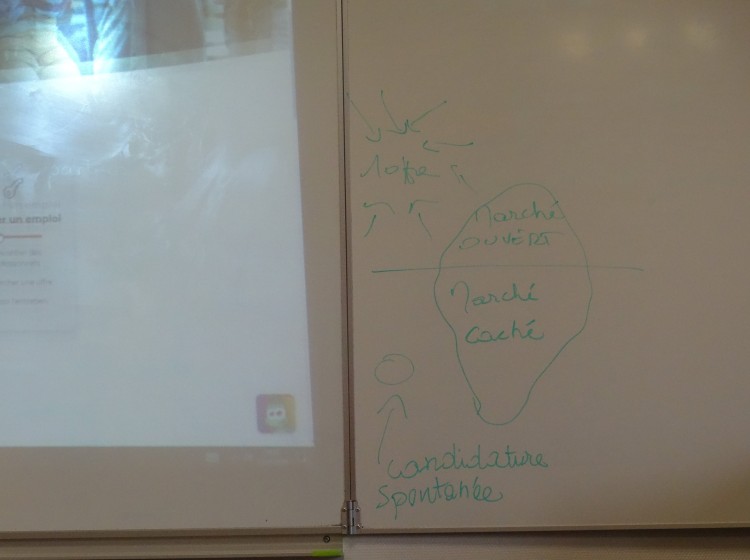 er un emploi
1 offre
Marché
OUVERT
Marché
caché
candidature
spontanée